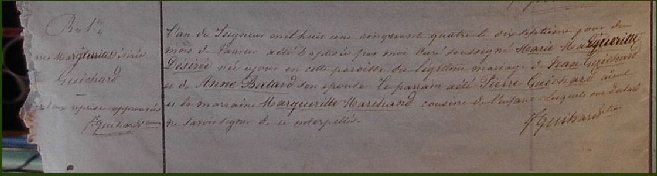 Marie Marguerite Désirée
Guichard
L'an du Seigneur mil huit cent cinquante quatre le dix septième jour du
mois de Janvier a été baptisée par moi Curé soussigné Marie Marguerite
Désirée née en cette paroisse du légitime mariage de Jean Guichard
et de Anne Batard son épouse. Le parrain a été Pierre Guichard
et la marraine Margueritte Marchand cousine de l'enfant lesquels ont déclaré
ne savoir signer de ce interpellés.
Guichard